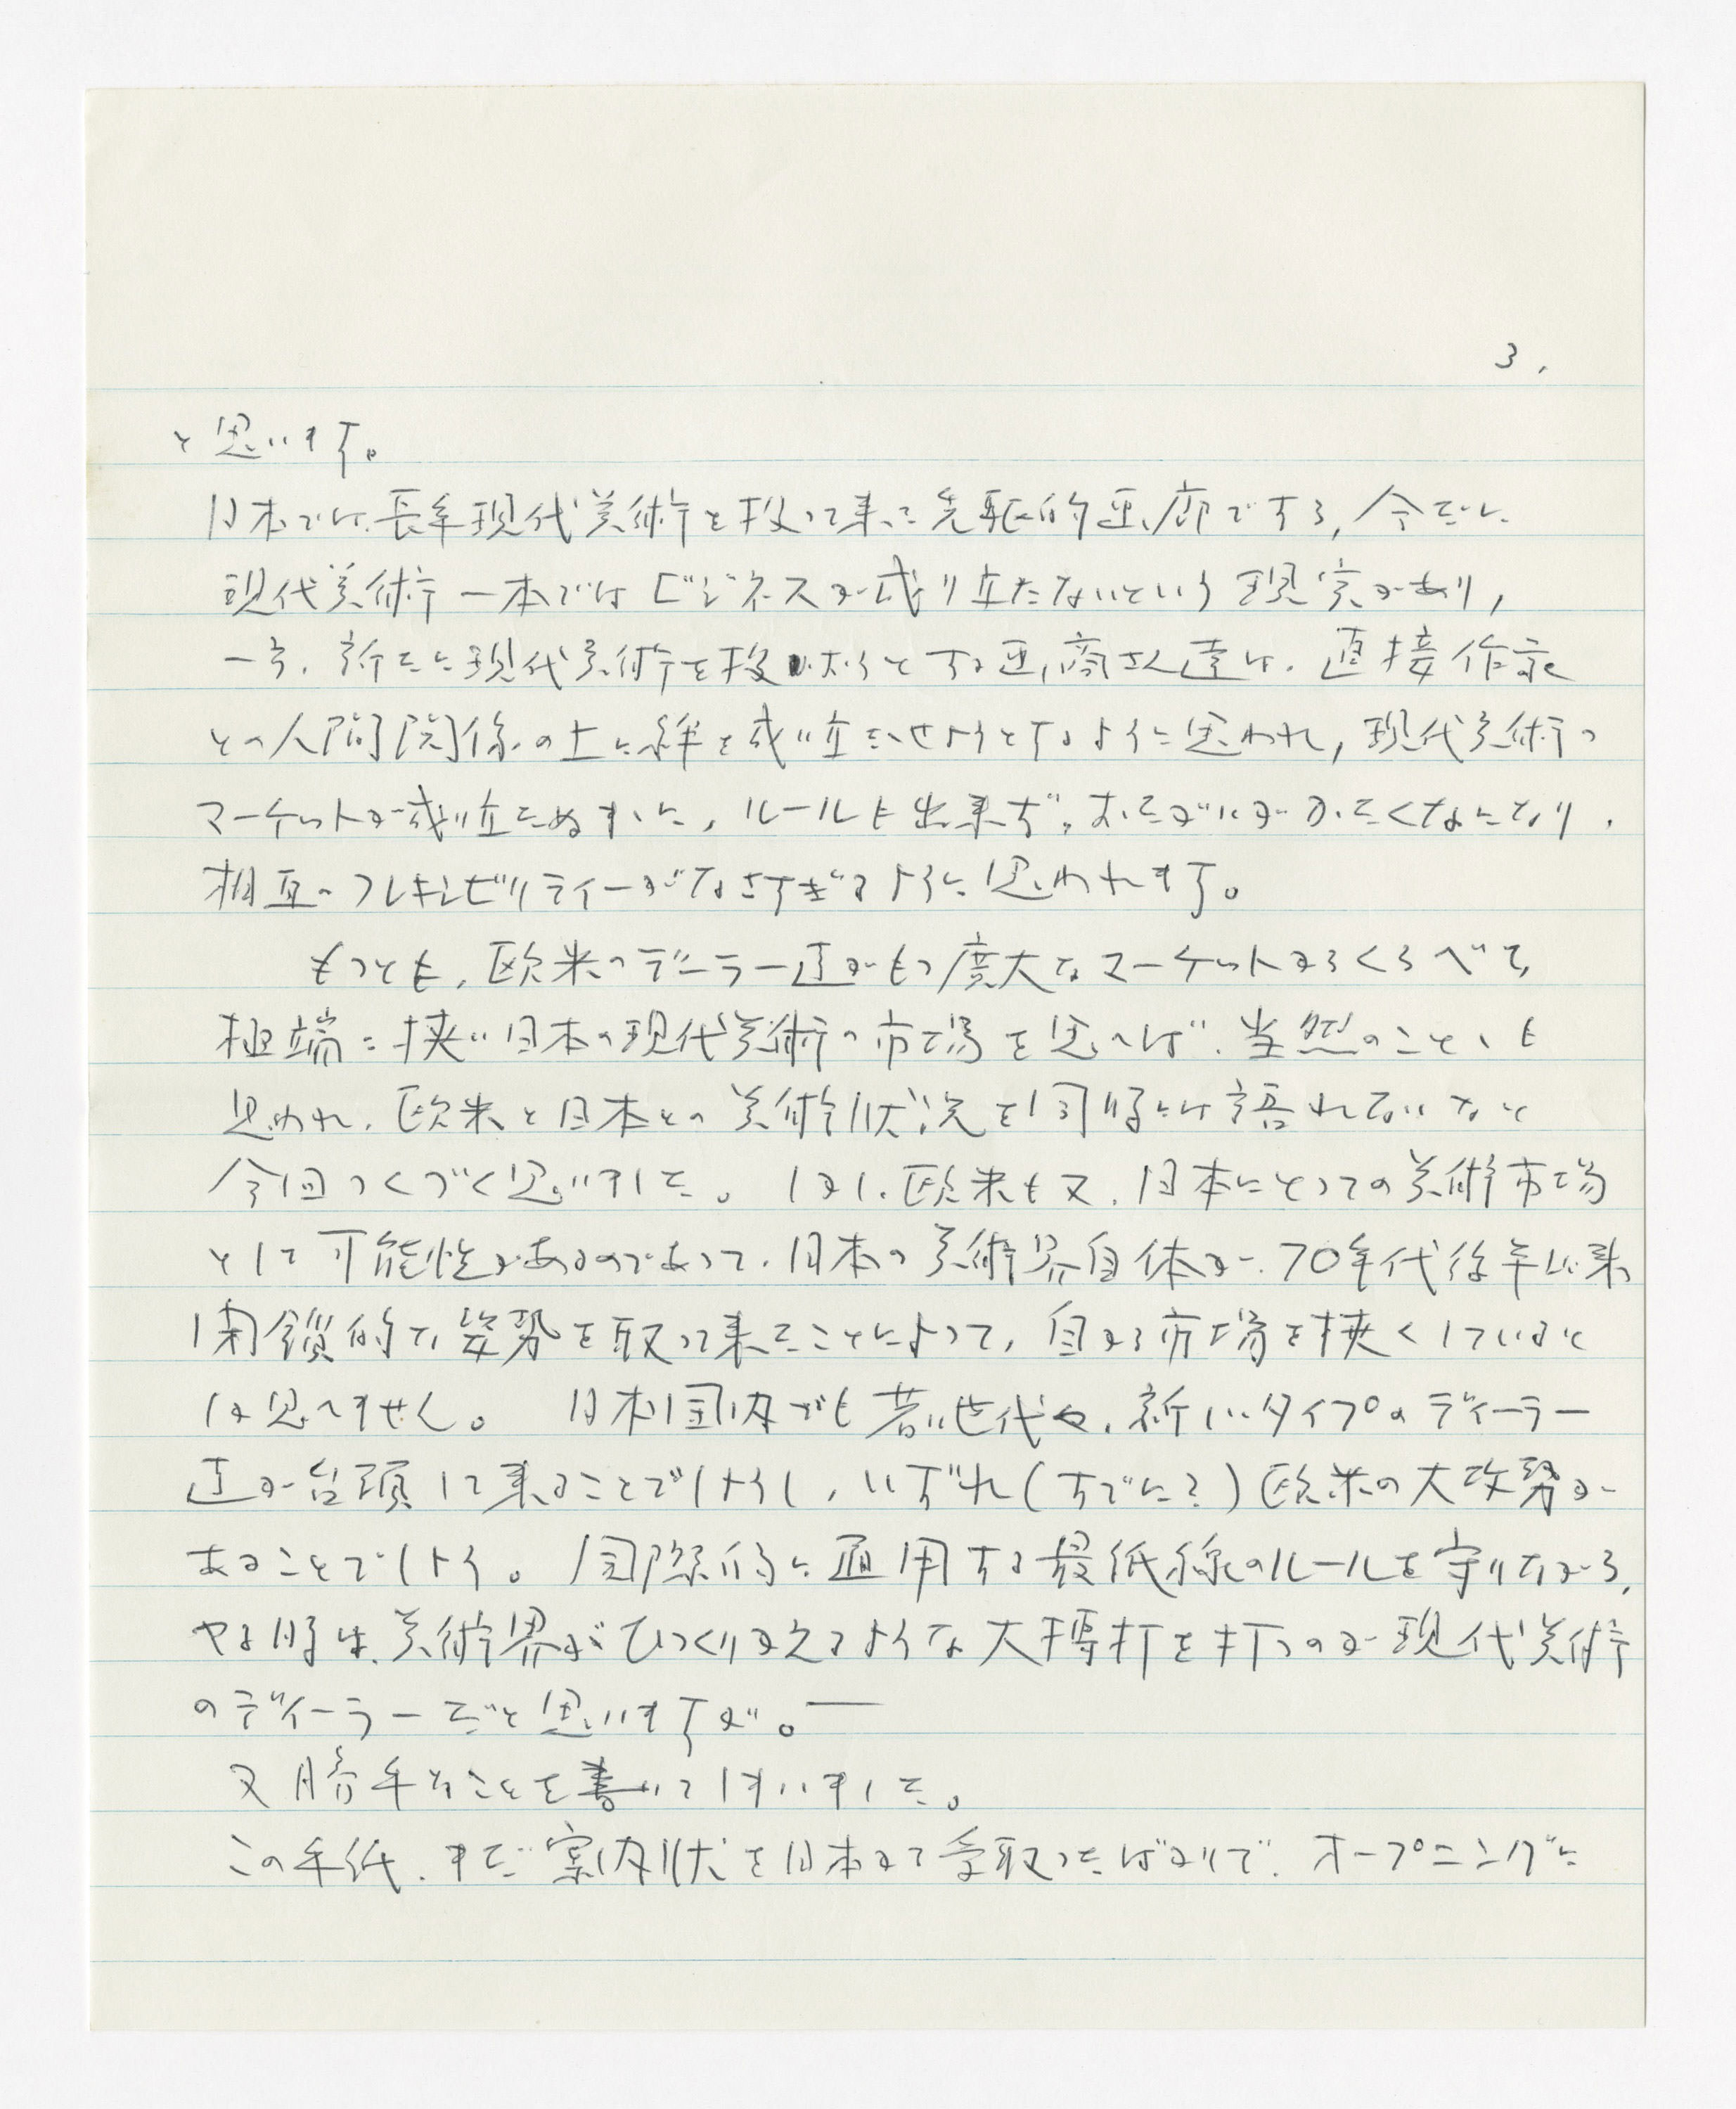 3.
と思います。
日本では、長年現代美術を扱って来た先駆的画廊ですら、今だに
現代美術一本ではビジネスが成り立たないという現実があり、
一方、新たに現代美術を扱おうとする画商さん達は、直接作家
との人間関係の上に絆を成り立たせようとするように思われ、現代美術の
マーケットが成り立たぬままに、ルールも出来ず、おたがいがかたくなになり、
相互のフレキシビリティーがなさすぎるように思われます。
もっとも、欧米のディーラー達がもつ広大なマーケットからくらべて、
極端に狭い日本の現代美術の市場を思へば、当然のことゝも
思われ、欧米と日本との美術状況を同様には語れないなと
今回つくづく思いました。しかし、欧米も又、日本にとっての美術市場
として可能性があるのであって、日本の美術界自体が、70年代後半以来
閉鎖的な姿勢を取って来たことによって、自から市場を狭くしているとし
か思へません。日本国内でも若い世代や、新しいタイプのディーラー
達が台頭して来ることでしょうし、いずれ(すでに?)欧米の大攻勢が
あることでしょう。国際的に通用する最低線のルールを守りながら、
やる時は、美術界がひっくりかえるような大博打を打つのが現代美術
のディーラーだと思いますが。―
又勝手なことを書いてしまいました。
この手紙、まだ案内状を日本から受取ったばかりで、オープニングに